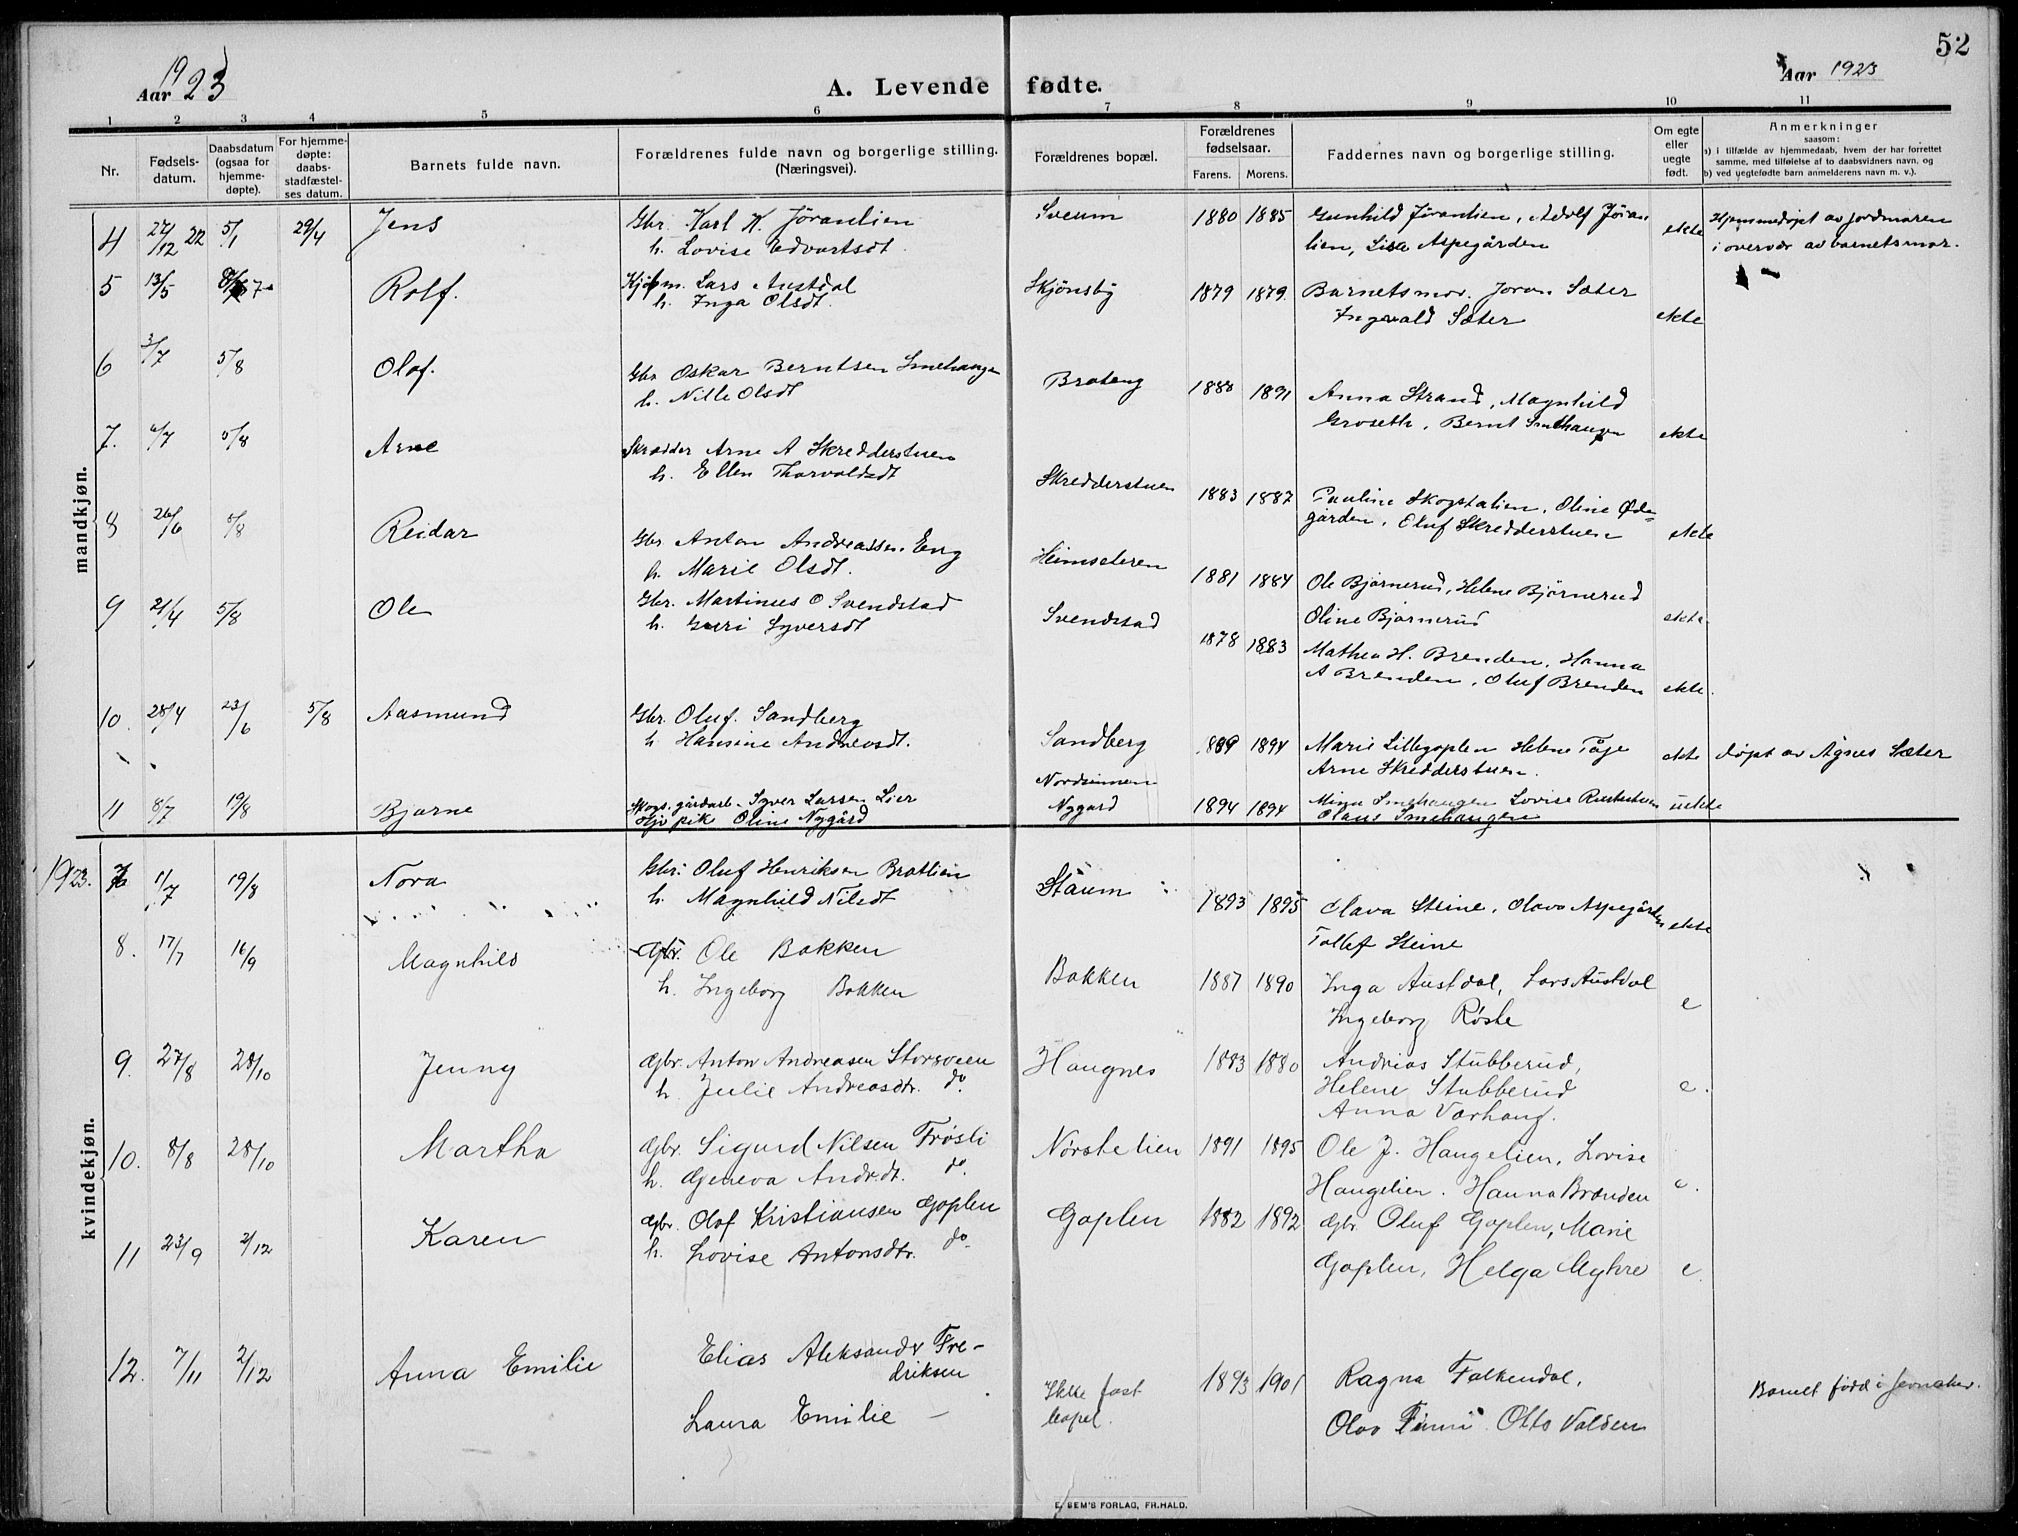 52
Aar 1923
A. Levende fødte.
Aar 1923
1 2 3 4 5 6 7 8 9 10 11
Nr.
Fødsels-
datum.
Daabsdatum
(ogsaa for
hjemme-
døpte).
For hjemme-
døpte:
daabs-
stadfæstel-
ses datum.
Barnets fulde navn.
Forældrenes fulde navn og borgerlige stilling.
(Næringsvei).
Forældrenes bopæl.
Forældrenes
fødselsaar.
Farens. Morens.
Faddernes navn og borgerlige stilling.
Om egte
eller
uegte
født.
Anmerkninger
saasom:
a) i tilfælde av hjemmedaab, hvem der har forrettet
samme, med tilføielse af to daabsvidners navn, og
b) ved uegtefødte barn anmelderens navn m. v.).
mandkjøn.
4 27/12 22 5/1 29/4 Jens Gbr. Karl K. Jørantlien Sveum 1880 1885 Gunhild Jørantlien, Adolf Jøran
h. Lovise Edvartsdt. lien, Lisa Aspegården ekte
Hjemmedøpt av jordmoren
i overvær av barnets mor.
5 13/5 Rolf. Lars Austdal Skjönsby 1879 1879 Barnets mor. Joran Sæter
h. Inga Olsdt. Ingvald Sæter ekte
6 3/7 5/8 Olaf. Gbr Oskar Berntsen Smehaugen Brateng 1891 Anna Strand, Magnhild
h. Nille Olsdt Groseth, Bernt Smehaugen ekte
7. 6/7 5/8 Arne Skrædder Arne A Skredderstuen Skredderstuen 1883 1887 Pauline Skogstalien, Oline Øde-
h. Ellen Thorvaldsdt gården, Oluf Skredderstuen ekte
8 26/6 5/8 Reidar Gbr Anton Andreassen Eng Heimseteren 1881 1884 Ole Bjørnerud, Helene Bjørnerud
h. Marie Olsdt. Oline Bjørnerud ekte
9 21/4 5/8 Ole Gbr. Martinus O Svendstad Svendstad 1878 1883 Mathea H. Brenden, Hanna
h. Guri Syversdt A Brenden, Oluf Brenden ekte.
10. 28/4 23/6 5/8 Aasmund Gbr. Oluf. Sandberg Sandberg 1894 Marie Lillegoplen Helene Tåje
h. Hansine Andreasdt. Arne Skredderstuen. ekte døpt av Agnes Sæter
11 8/7 19/8 Bjarne Skogs. gårdarb. Syver Larsen Lier Nordsinnen
pik Oline Nygård Nygard 1894 1894 Mina Smehaugen Lovise uekte
Olaus Smehaugen
kvindekjøn.
1923. 7 1/7 19/8 Nora Gbr. Oluf Henriksen Bratlien Staum 1893 1895 Olava Steine, Olava Aspegården ekte
h. Magnhild Nilsdt Tollef Steine
8. 17/7 16/9 Magnhild Gbr. Ole Bakken Bakken 1887 1890 Inga Austdal, Lars Austdal
h. Ingeborg Bakken Ingeborg Røste e
9. 27/8 28/10 Jenny Gbr. Anton Andreasen Storsveen Haugnes 1883 1880 Andreas Stubberud,
h. Julie Andreasdtr. do. Helene Stubberud e.
Anna Værhaug.
10. 8/8 28/10 Martha Gbr. Sigurd Nilsen Frøsli Nørstelien 1891 1895 Ole J. Haugelien, Lovise
h. Geneva Andr.dt. do. Haugelien. Hanna Brænden e.
11 23/9 2/12 Karen Gbr. Olof Kristiansen Goplen Goplen 1882 1892 Gbr. Oluf Goplen, Marie
h. Lovise Antonsdtr. do. Goplen, Helga Myhre e.
12. 7/11 2/12 Anna Emilie Elias Aleksander Fre-
driksen
Laura Emilie –
Ikke fast
bopel. 1893 1901 Ragna Falkendal,
Olav Otto Valden
Barnet född i Jevnaker.
E. SEM'S FORLAG, FR.HALD.